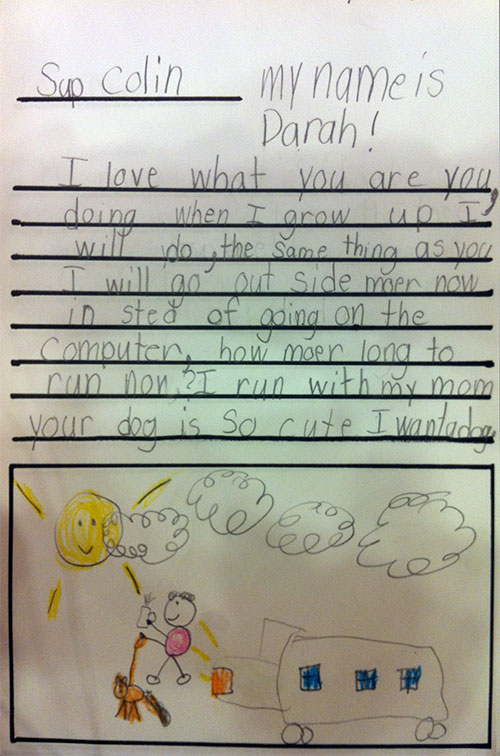 Sup Colin my name is
Darah!
I love what you are you,
doing when I grow up I
will do, the same thing as you
I will go out side moer now
in sted of going on the
computer, how moer long to
run now,? I run with my mom
your dog is so cute I want a dog